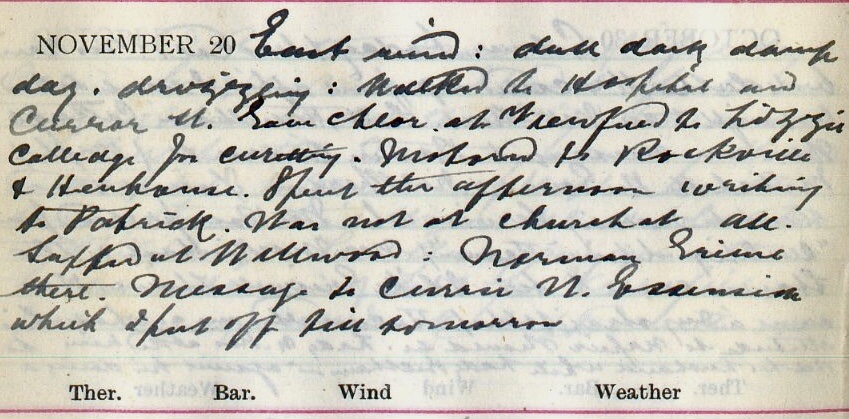 NOVEMBER 20 East wind: dull dark damp
day. drizzling: Walked to Hospital and
Curror St. Gave Chlor. at to Lizzie
Calledge for curetting. Motored to Rockville
& Henhouse. Spent the afternoon writing
to Patrick. Was not at church at all.
Supped at Wellwood: Norman Grieve
there. Message to Currie N. Essenside
which I put off till tomorrow
Ther. Bar. Wind Weather